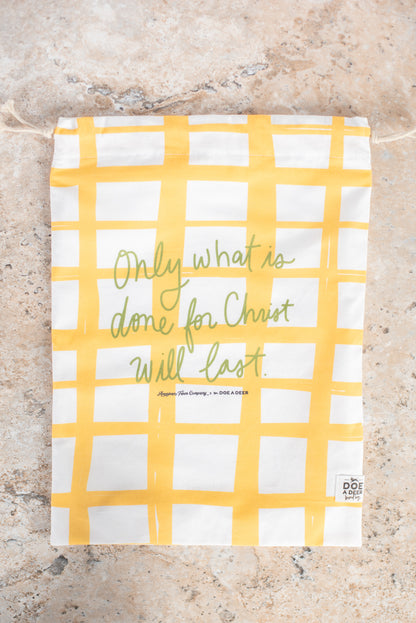 Only what is
done for Christ
will last.
DOE A DEER
DOE
A DEER